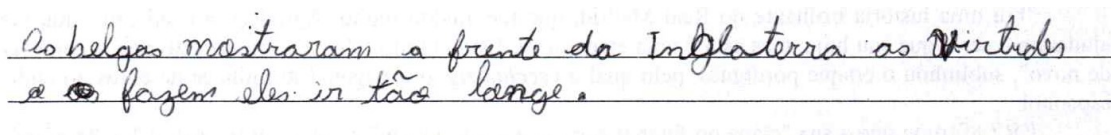 Os belgas mostraram a frente da Inglaterra as virtudes
e os fazem eles ir tão longe.